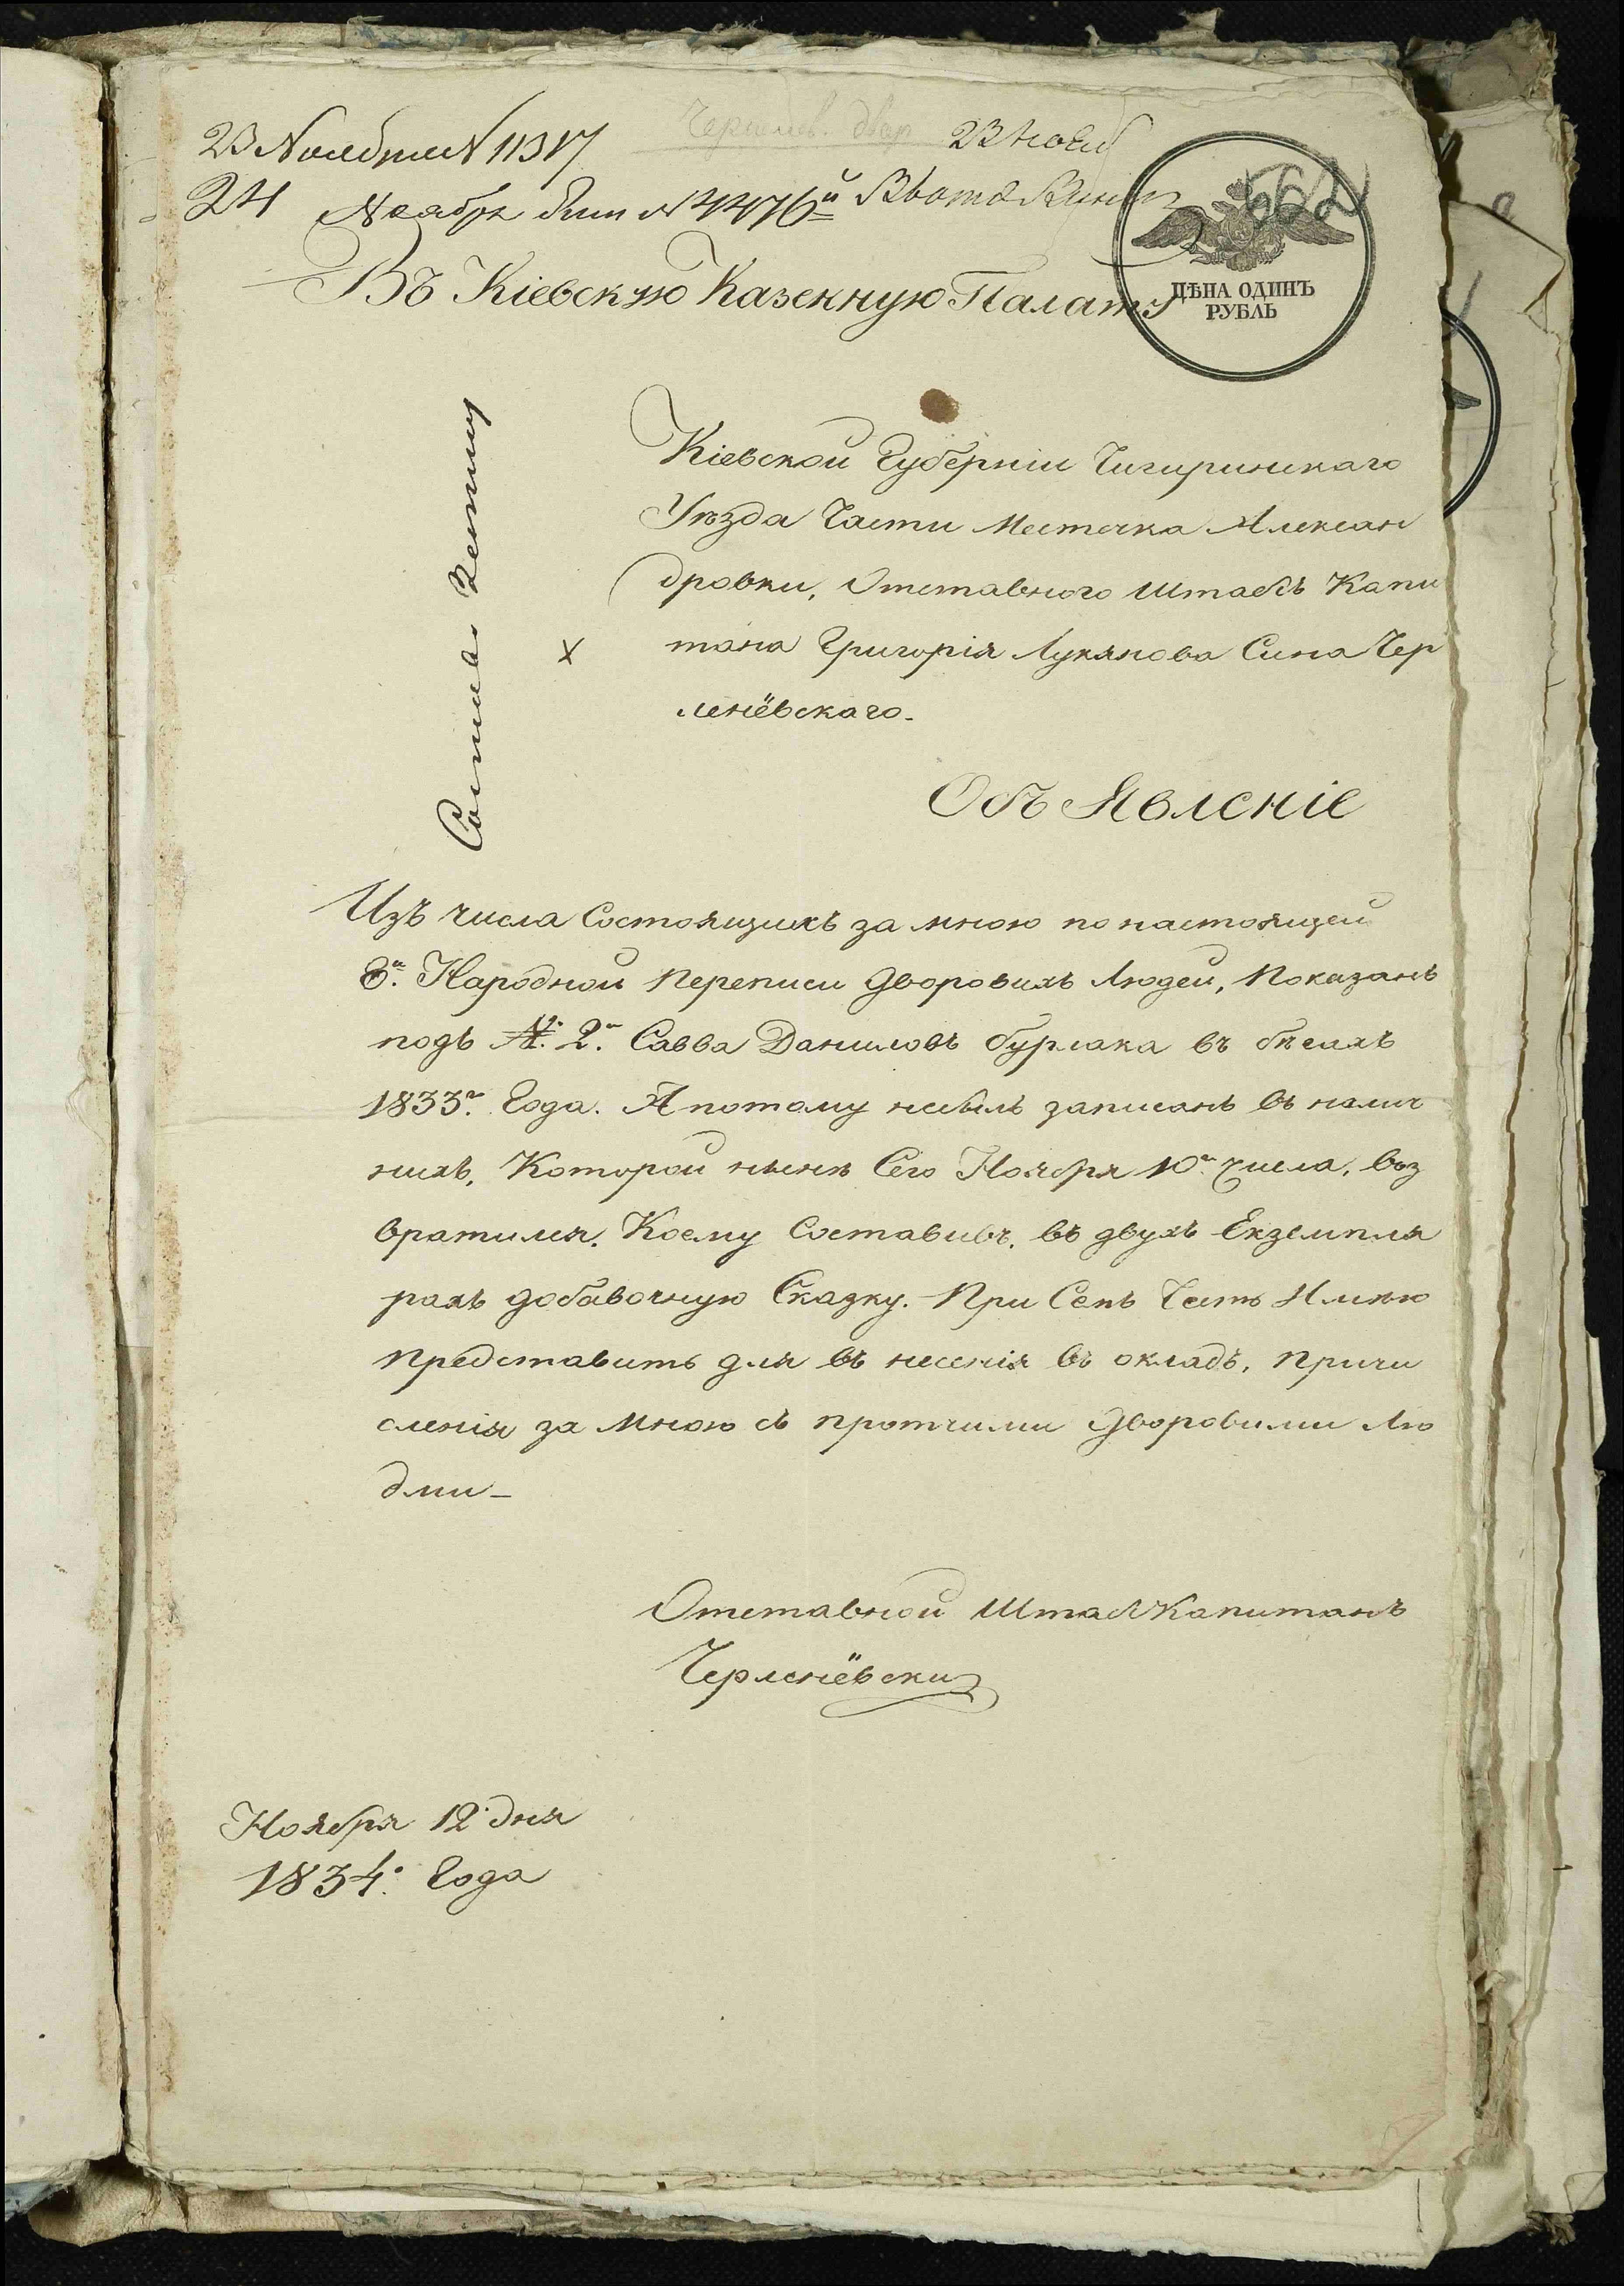 23 Ноября № 11317
Черленев. двор
23 нояб
24 Ноября
662
Въ Кіевскую Казенную Палату
ЦѢНА ОДИНЪ
РУБЛЬ
Кіевской Губерніи Чигиринскаго
Уѣзда Части Местечка Алексан
дровки, Отставного Штабъ Капи
х тана Григорія Лукянова Сина Чер
ленёвскаго.
Объ Явленіе
Изъ числа Состоящихъ за мною по настоящей
8й Народной Переписи Дворовихъ Людей, Показанъ
подъ №. 2м Савва Даниловъ бурлака въ бѣгахъ
1833го Года. А потому небылъ записанъ въ налич
нихъ, Которой нынѣ Сего Ноября 10го числа, воз
вратился. Коему Составивъ, въ двухъ Екземпля
рахъ добавочную Сказку. При Семъ Честь Имѣю
Представить для въ несенія въ окладъ, причи
сленія за Мною съ протчими Дворовими Лю
дми_
Отставной ШтабКапитанъ
Черленёвски
Ноября 12 дня
1834. Года